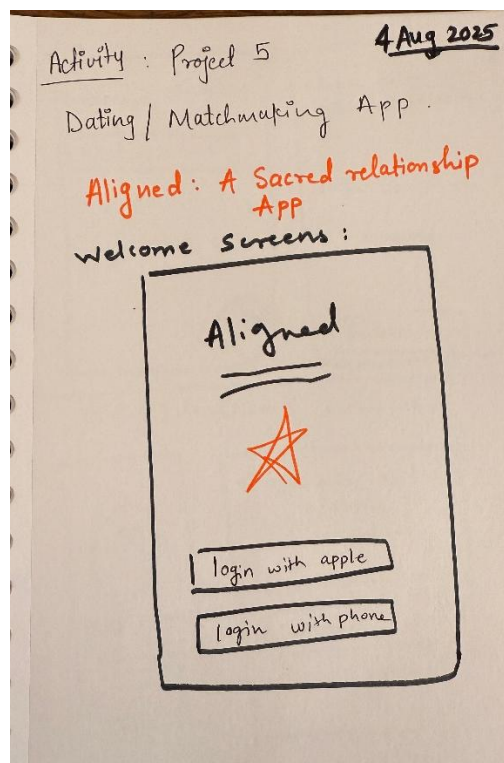 4 Aug 2025
Activity : Project 5
Dating / Matchmaking App .
Aligned : A Sacred relationship
App
Welcome Screens :
Aligned
login with apple
login with phone